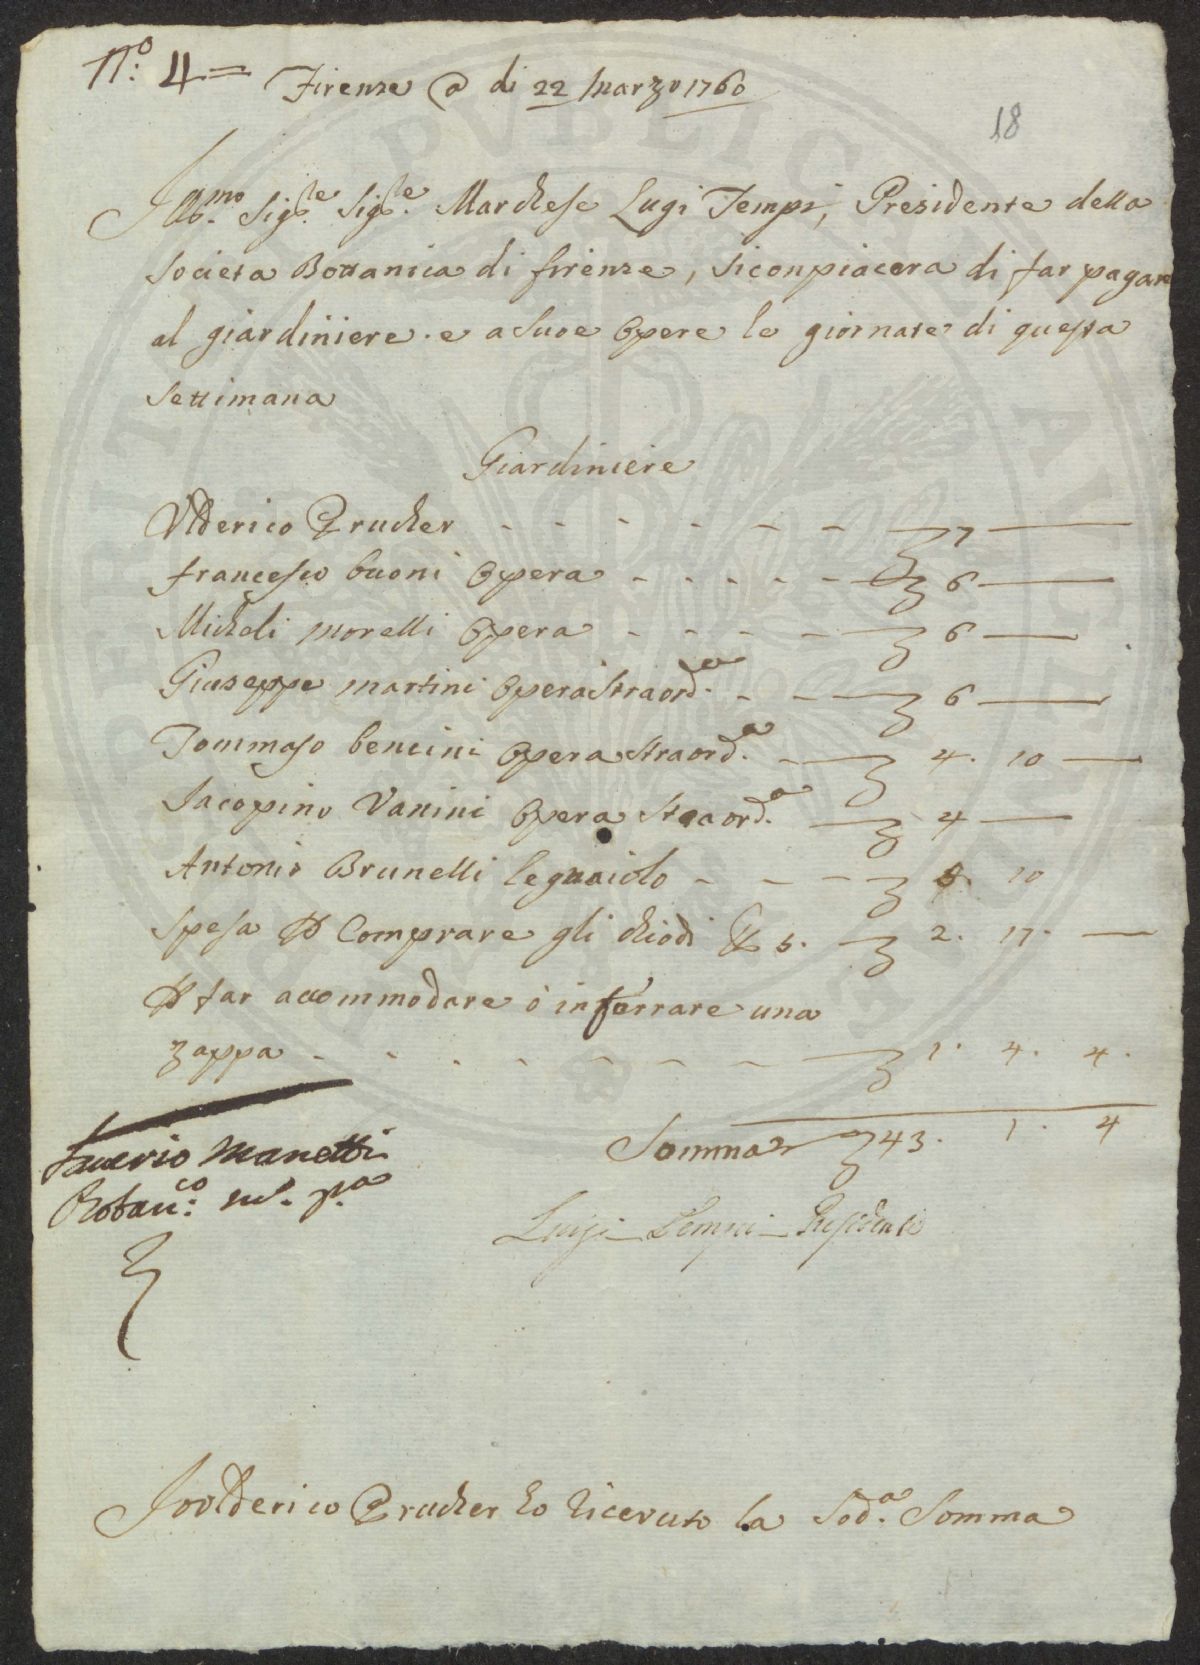 N.º 4 = Firenze a di 22 Marzo 1760
18
Ill.mo Sig.re Sig.re Marchese Lugi Tempi, Presidente della
Societa Bottanica di firenze, Siconpiacera di far pagare
al giardiniere e a Suoe Opere le giornate di questa
Settimana
Giardiniere
Vlderico Prucher - - - - - - - 7 —
francesco buoni Opera - - - - - 6 —
Micheli morelli Opera - - - - 6 —
Giuseppe martini Opera Straord.a - - 6 —
Tommaso bencini Opera Straord.a - 4. 10 —
Jacopino Vanini Opera Straord.a 4 —
Antonio Brunelli legnaiolo - - - 10
Spesa P Comprare gli chiodi 5. 2. 17. —
P far accommodare ò inferrare una
zappa - - - - - - - - 1. 4. 4.
Somma 43. 1. 4
Saverio Manetti
Botan.co m. p.a
Luigi Tempi Presidente
Io Vlderico Prucher ho Riceuuto la Sod.a Somma
PVBLICA